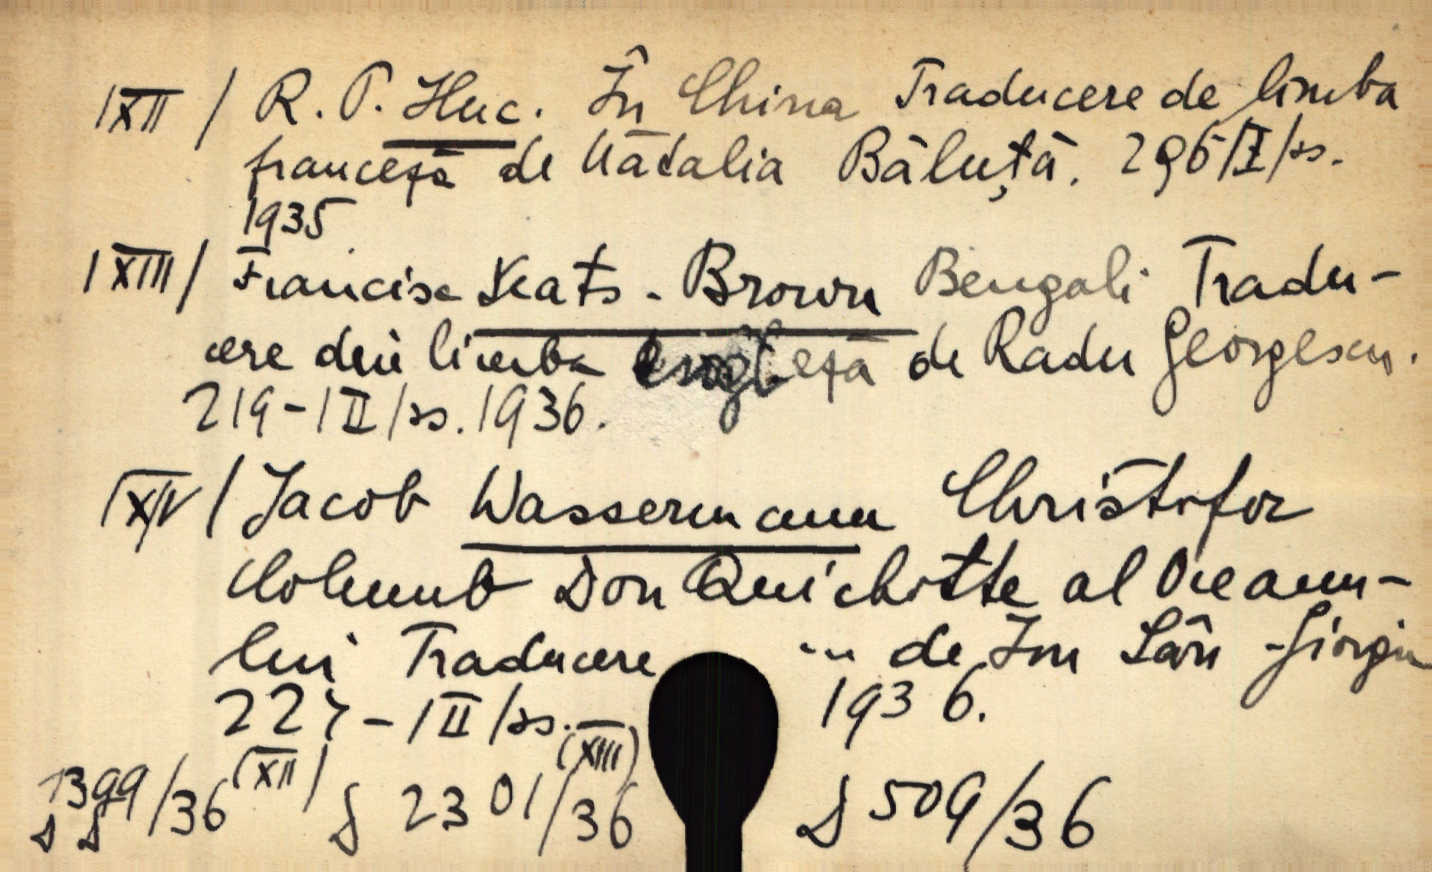 |XII / R. P. Huc. În China Traducere de limba
franceză de Natalia Băluță. 296/I/ss.
1935
|XIII / Francisc Yeats-Brown Bengali Tradu-
cere din limba engleză de Radu Georgescu.
219-|II/ss. 1936.
|XIV / Jacob Wassermann Christofor
Columb Don Quichotte al Oceanu-
lui Traducere ... de Ion Sân-Giorgiu
227-|II/ss. 1936.
1399/36 (XII) | 2301/36 (XIII) 509/36